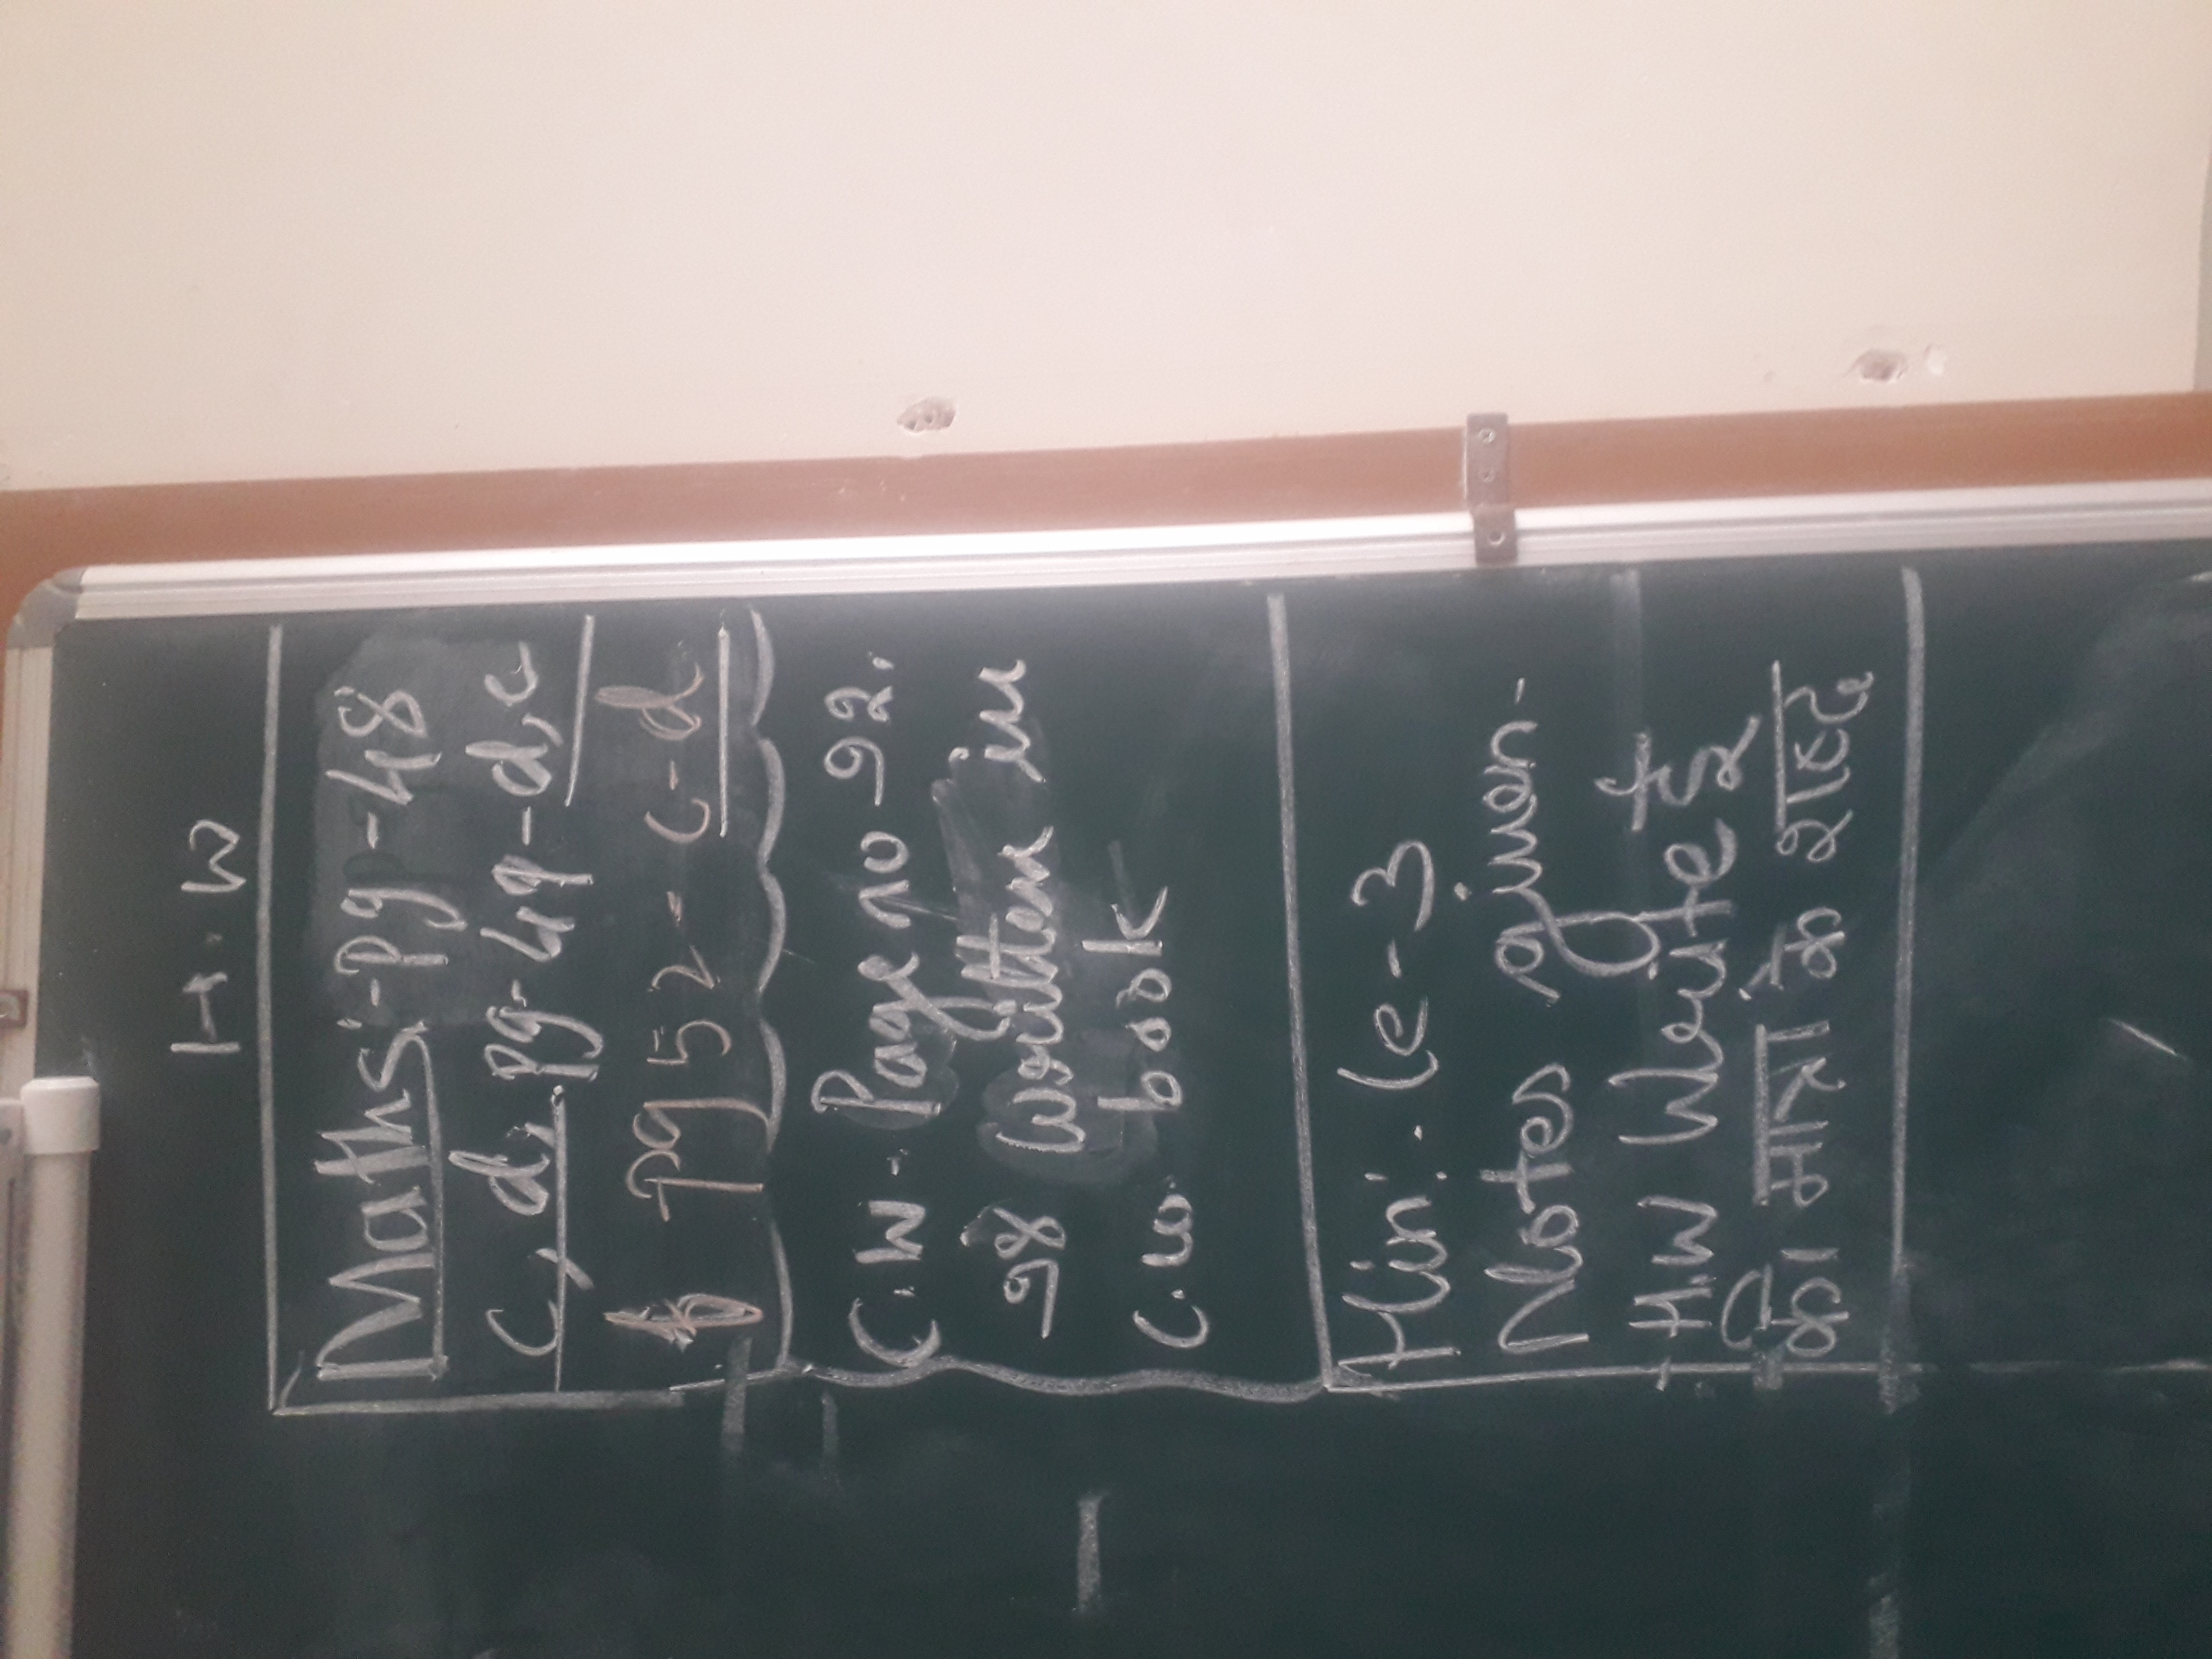 H.W
Maths:-Pg-48
c, d, Pg-49-d,e
Pg 52- c-d
C.W- Page no 92.
98 written in
C.w book
Hin:. Le-3
Notes given-
H.W Write इ
की मात्रा के शब्द